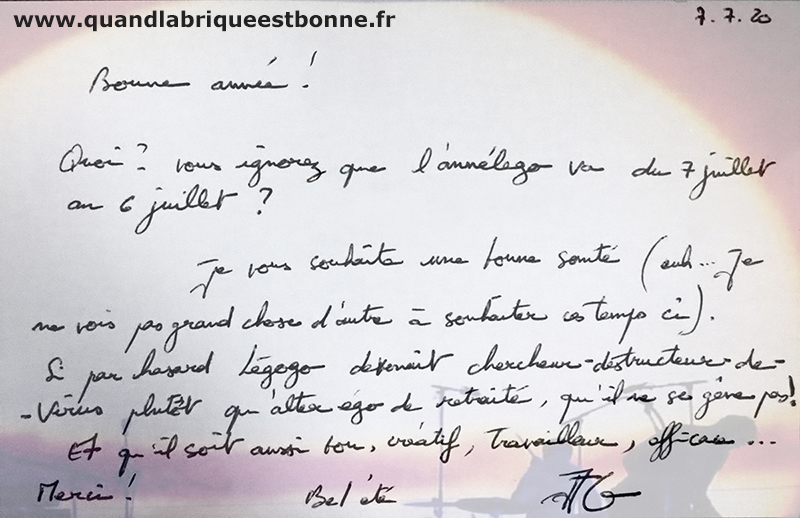 www.quandlabriqueestbonne.fr
7.7.20
Bonne année !
Quoi ? vous ignorez que l'annélego va du 7 juillet
au 6 juillet ?
Je vous souhaite une bonne santé (euh... Je
ne vois pas grand chose d'autre à souhaiter ces temps ci).
Si par hasard Légego devenait chercheur-destructeur-de-
-virus plutôt qu'alter égo de retraité, qu'il ne se gêne pas !
Et qu'il soit aussi bon, créatif, travailleur, efficace ...
Merci !
Bel été